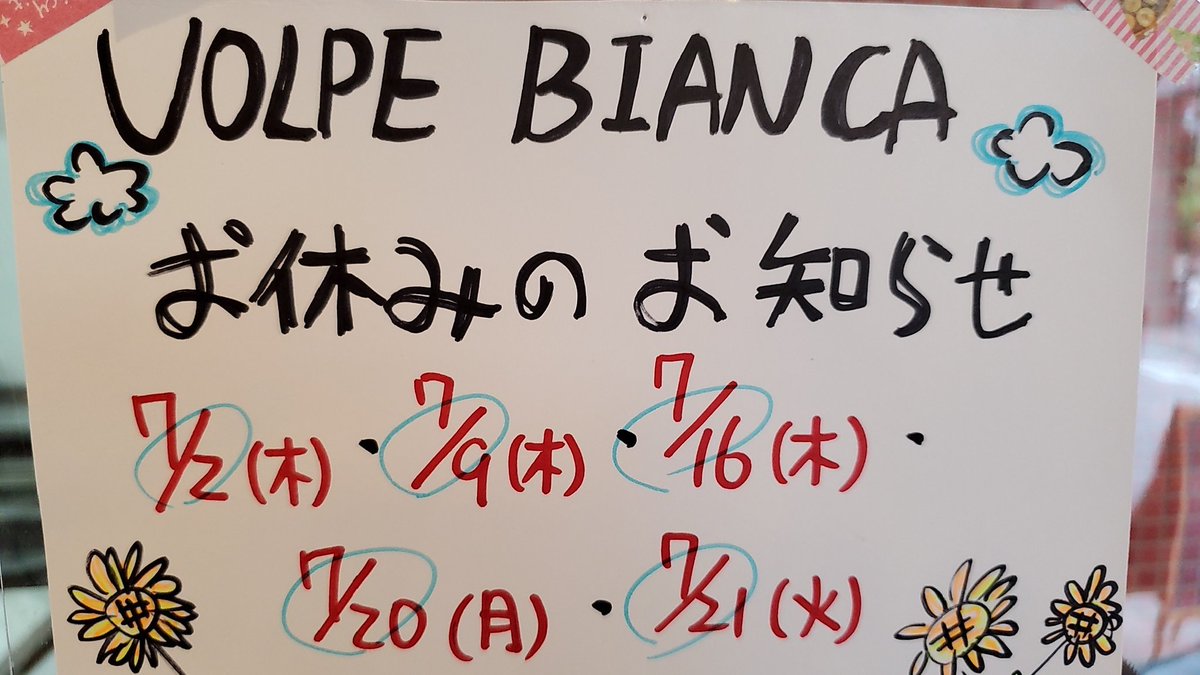 VOLPE BIANCA
お休みのお知らせ
7/2(木)・7/9(木)・7/16(木)・
7/20(月)・7/21(火)